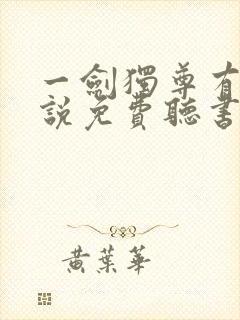 一劍獨尊有
說免費聽書
黃葉華